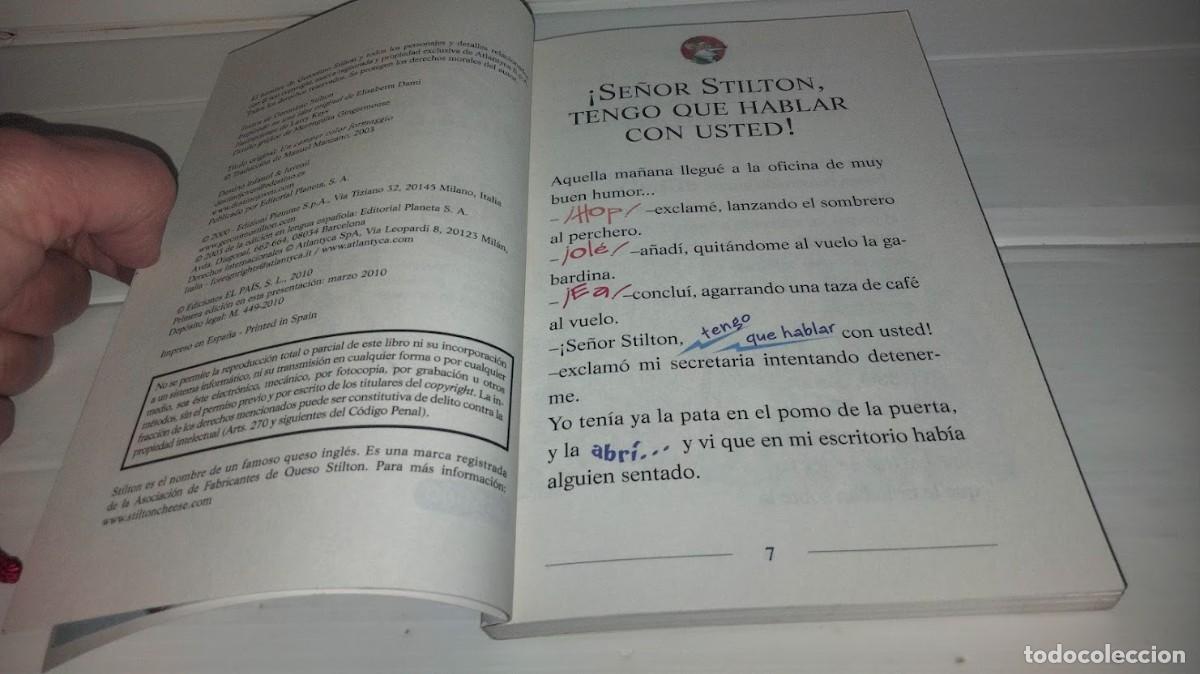 El nombre de Geronimo Stilton y todos los personajes y detalles relacionados
con él son copyright, marca registrada y propiedad exclusiva de Atlantyca S.p.A.
Todos los derechos reservados. Se protegen los derechos morales del autor.
Textos de Geronimo Stilton
Inspirado en una idea original de Elisabetta Dami
Ilustraciones de Larry Keys
Diseño gráfico de Merenguita Gingermouse
Título original: Un camper color formaggio
© Traducción de Manuel Manzano, 2003
Destino Infantil & Juvenil
destinojoven@edestino.es
www.destinojoven.com
Publicado por Editorial Planeta, S. A.
© 2000 - Edizioni Piemme S.p.A., Via Tiziano 32, 20145 Milano, Italia
www.geronimostilton.com
© 2003 de la edición en lengua española: Editorial Planeta S. A.
Avda. Diagonal, 662-664, 08034 Barcelona
Derechos internacionales © Atlantyca SpA, Via Leopardi 8, 20123 Milán,
Italia - foreignrights@atlantyca.it / www.atlantyca.com
© Ediciones EL PAÍS, S. L., 2010
Primera edición en esta presentación: marzo 2010
Depósito legal: M. 449-2010
Impreso en España - Printed in Spain
No se permite la reproducción total o parcial de este libro ni su incorporación
a un sistema informático, ni su transmisión en cualquier forma o por cualquier
medio, sea éste electrónico, mecánico, por fotocopia, por grabación u otros
métodos, sin el permiso previo y por escrito de los titulares del copyright. La in-
fracción de los derechos mencionados puede ser constitutiva de delito contra la
propiedad intelectual (Arts. 270 y siguientes del Código Penal).
Stilton es el nombre de un famoso queso inglés. Es una marca registrada
de la Asociación de Fabricantes de Queso Stilton. Para más información:
www.stiltoncheese.com
¡SEÑOR STILTON,
TENGO QUE HABLAR
CON USTED!
Aquella mañana llegué a la oficina de muy
buen humor...
–¡Hop! –exclamé, lanzando el sombrero
al perchero.
–¡olé! –añadí, quitándome al vuelo la ga-
bardina.
–¡Ea! –concluí, agarrando una taza de café
al vuelo.
–¡Señor Stilton, tengo que hablar con usted!
–exclamó mi secretaria intentando detener-
me.
Yo tenía ya la pata en el pomo de la puerta,
y la abrí... y vi que en mi escritorio había
alguien sentado.
7
todocoleccion